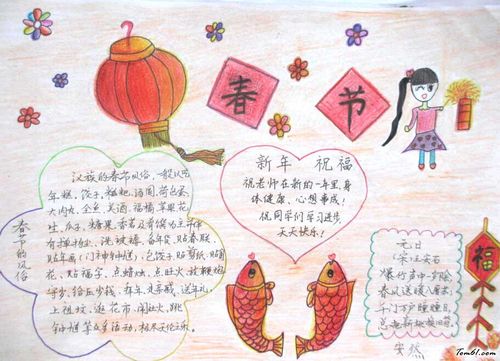 春节
春节的风俗
汉族的春节风俗,一般以吃
年糕、饺子、糍粑、汤圆、荷包蛋、
大肉丸、全鱼、美酒、福橘、苹果、花
生、瓜子、糖果、香茗及肴馔为主,并伴
有掸扬尘、洗被褥、备年货、贴春联、
贴年画、贴剪纸、贴窗
花、贴福字、点蜡烛、点旺火、放鞭炮、
守岁、给压岁钱、拜年、走亲戚、送年礼、
上祖坟、逛花市、闹社火、跳
钟馗等众多活动,极尽天伦之乐。
新年 祝福
祝老师在新的一年里,身
体健康、心想事成!
祝同学们学习进步,
天天快乐!
元日
宋·王安石
爆竹声中一岁除
春风送暖入屠苏
千门万户曈曈日
总把新桃换旧符
福
安然
Tom61.com